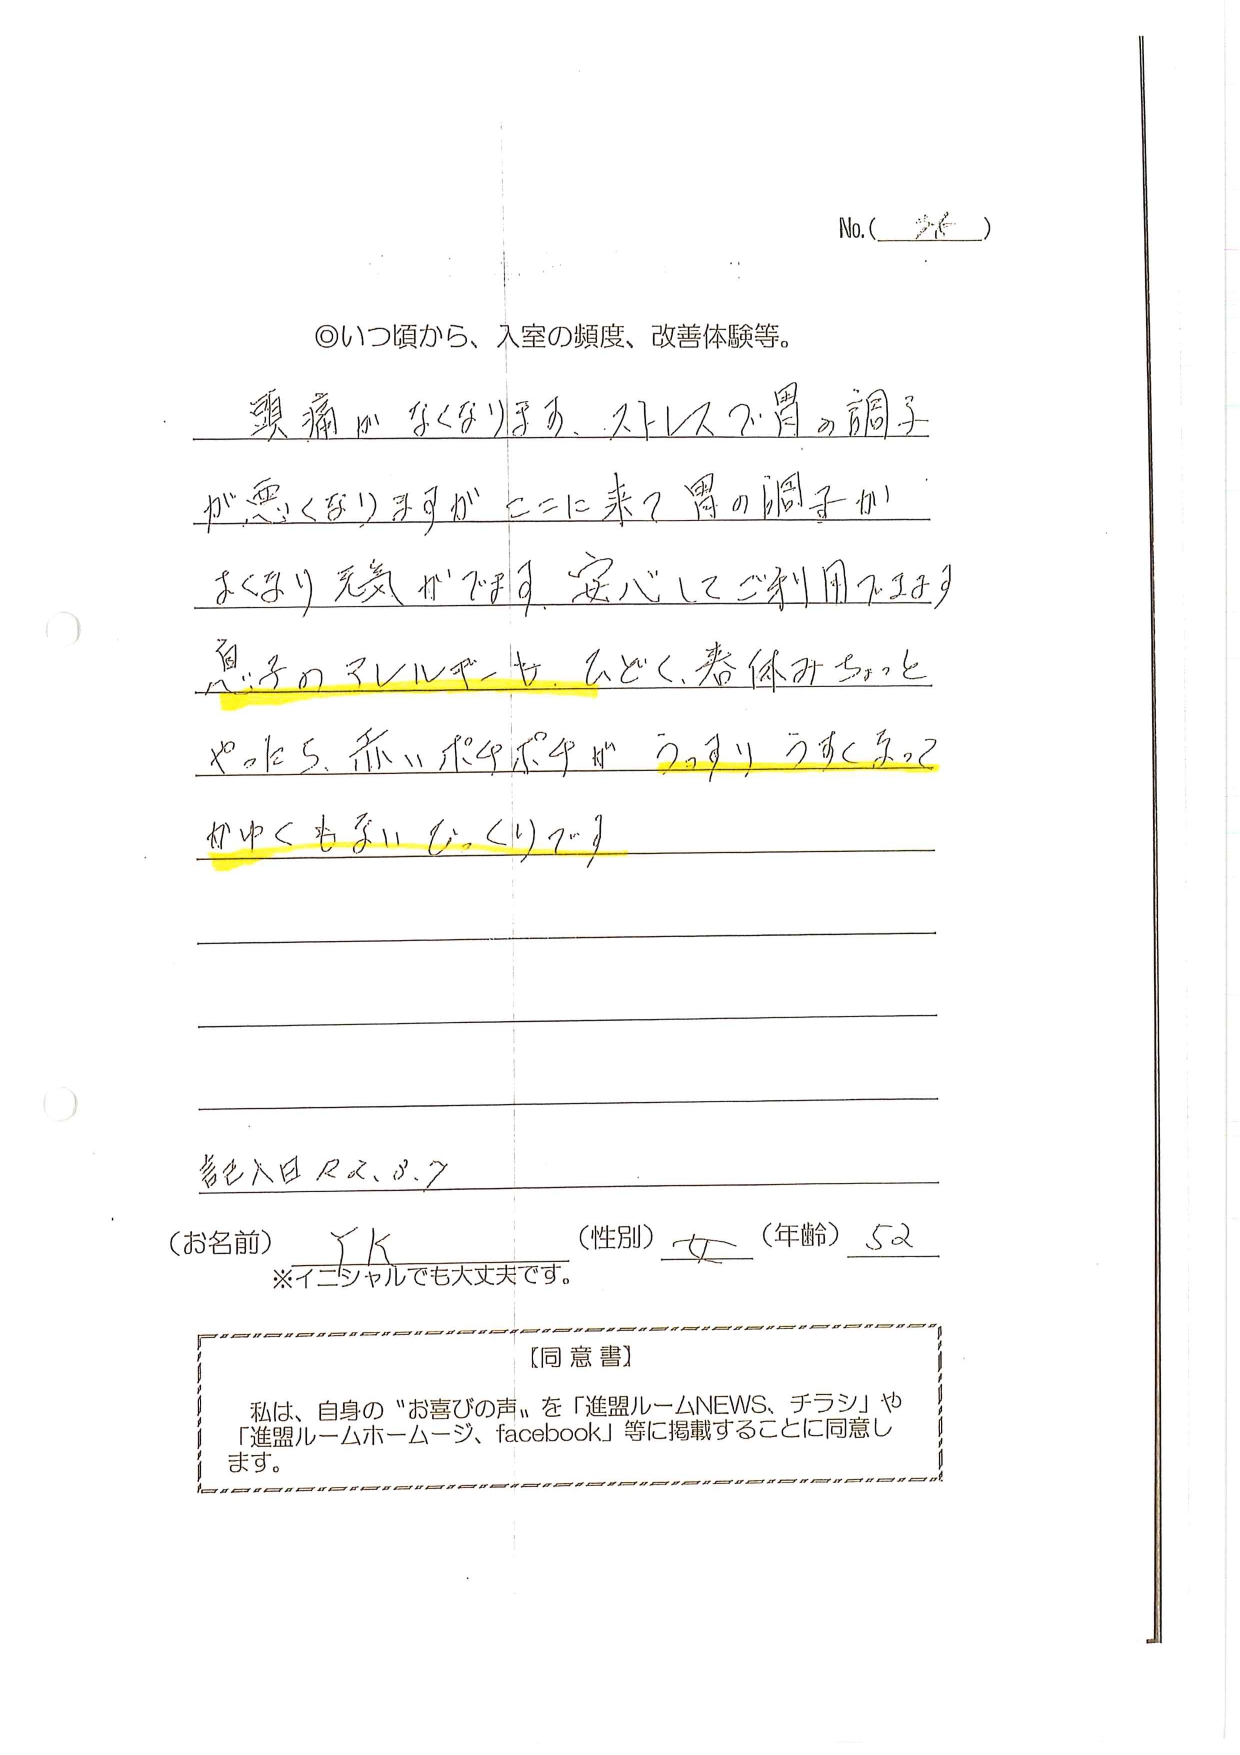 No.( )
◎いつ頃から、入室の頻度、改善体験等。
頭痛がなくなります、ストレスで胃の調子
が悪くなりますがここに来て胃の調子が
よくなり元気がでます、安心してご利用できます
息子のアレルギーも、ひどく、春休みちょっと
やったら、赤いポチポチがうっすりうすくなって
かゆくもないびっくりです
記入日 R2.8.7
(お名前) YK (性別) 女 (年齢) 52
※イニシャルでも大丈夫です。
【同意書】
私は、自身の〝お喜びの声〟を「進盟ルームNEWS、チラシ」や
「進盟ルームホームージ、facebook」等に掲載することに同意し
ます。